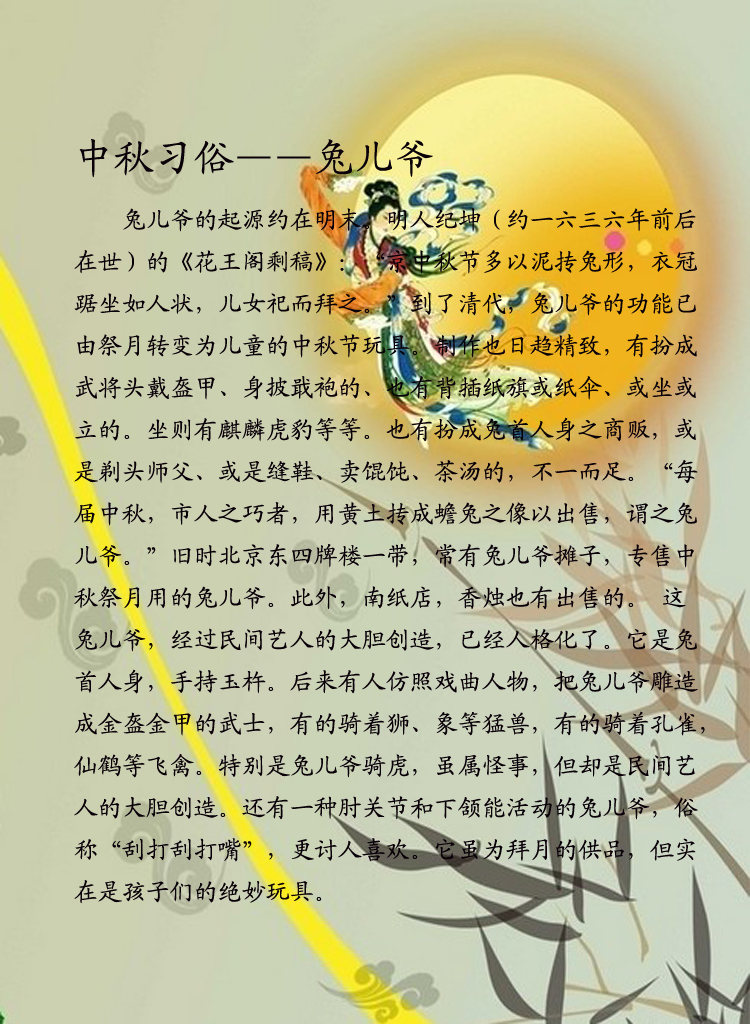 中秋习俗——兔儿爷
兔儿爷的起源约在明末。明人纪坤（约一六三六年前后
在世）的《花王阁剩稿》：“京中秋节多以泥抟兔形，衣冠
踞坐如人状，儿女祀而拜之。”到了清代，兔儿爷的功能已
由祭月转变为儿童的中秋节玩具。制作也日趋精致，有扮成
武将头戴盔甲、身披戢袍的、也有背插纸旗或纸伞、或坐或
立的。坐则有麒麟虎豹等等。也有扮成兔首人身之商贩，或
是剃头师父、或是缝鞋、卖馄饨、茶汤的，不一而足。“每
届中秋，市人之巧者，用黄土抟成蟾兔之像以出售，谓之兔
儿爷。”旧时北京东四牌楼一带，常有兔儿爷摊子，专售中
秋祭月用的兔儿爷。此外，南纸店，香烛也有出售的。 这
兔儿爷，经过民间艺人的大胆创造，已经人格化了。它是兔
首人身，手持玉杵。后来有人仿照戏曲人物，把兔儿爷雕造
成金盔金甲的武士，有的骑着狮、象等猛兽，有的骑着孔雀，
仙鹤等飞禽。特别是兔儿爷骑虎，虽属怪事，但却是民间艺
人的大胆创造。还有一种肘关节和下颌能活动的兔儿爷，俗
称“刮打刮打嘴”，更讨人喜欢。它虽为拜月的供品，但实
在是孩子们的绝妙玩具。